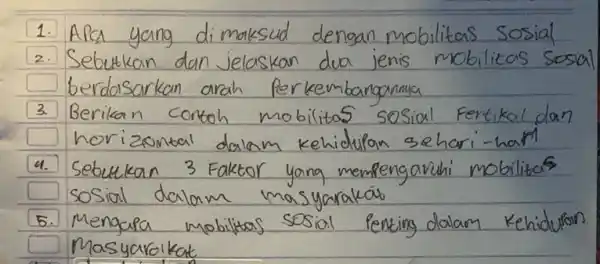 1. Apa yang di maksud dengan mobilitas sosial
2. Sebutkan dan jelaskan dua jenis mobilitas sosial
berdasarkan arah Perkembangannya
3. Berikan contoh mobilitas sosial Fertikal dan
horizontal dalam kehidupan sehari-hari
4. Sebutkan 3 Faktor yang mempengaruhi mobilitas
sosial dalam masyarakat
5. Mengapa mobilitas sosial Penting dalam Kehidupan
Masyaraikat